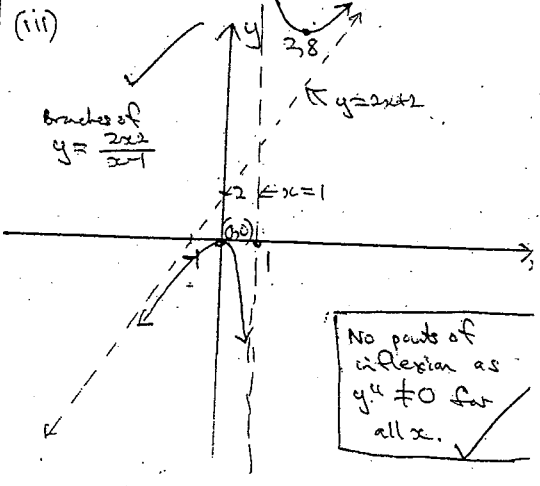 (iii)
y
2,8
y=2x+2
Branches of
y = 2x2
x-1
2
x=1
(0,0)
-1
1
No points of
inflexion as
y" ≠0 for
all x.